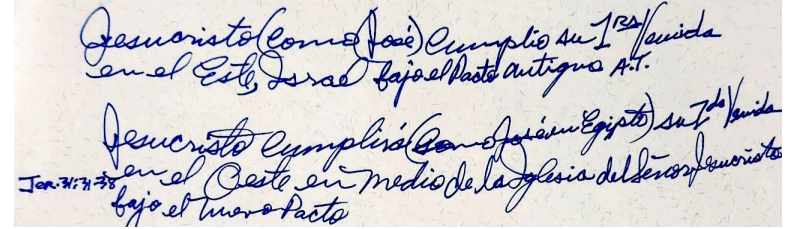 Jesucristo (como José) cumplio su 1RA Venida
en el Este, Israel bajo el Pacto antiguo A.T.
Jesucristo cumplirá (como José en Egipto) su 2da Venida
Jer. 31:31-38 en el Oeste en medio de la Iglesia del Señor Jesucristo
bajo el nuevo Pacto